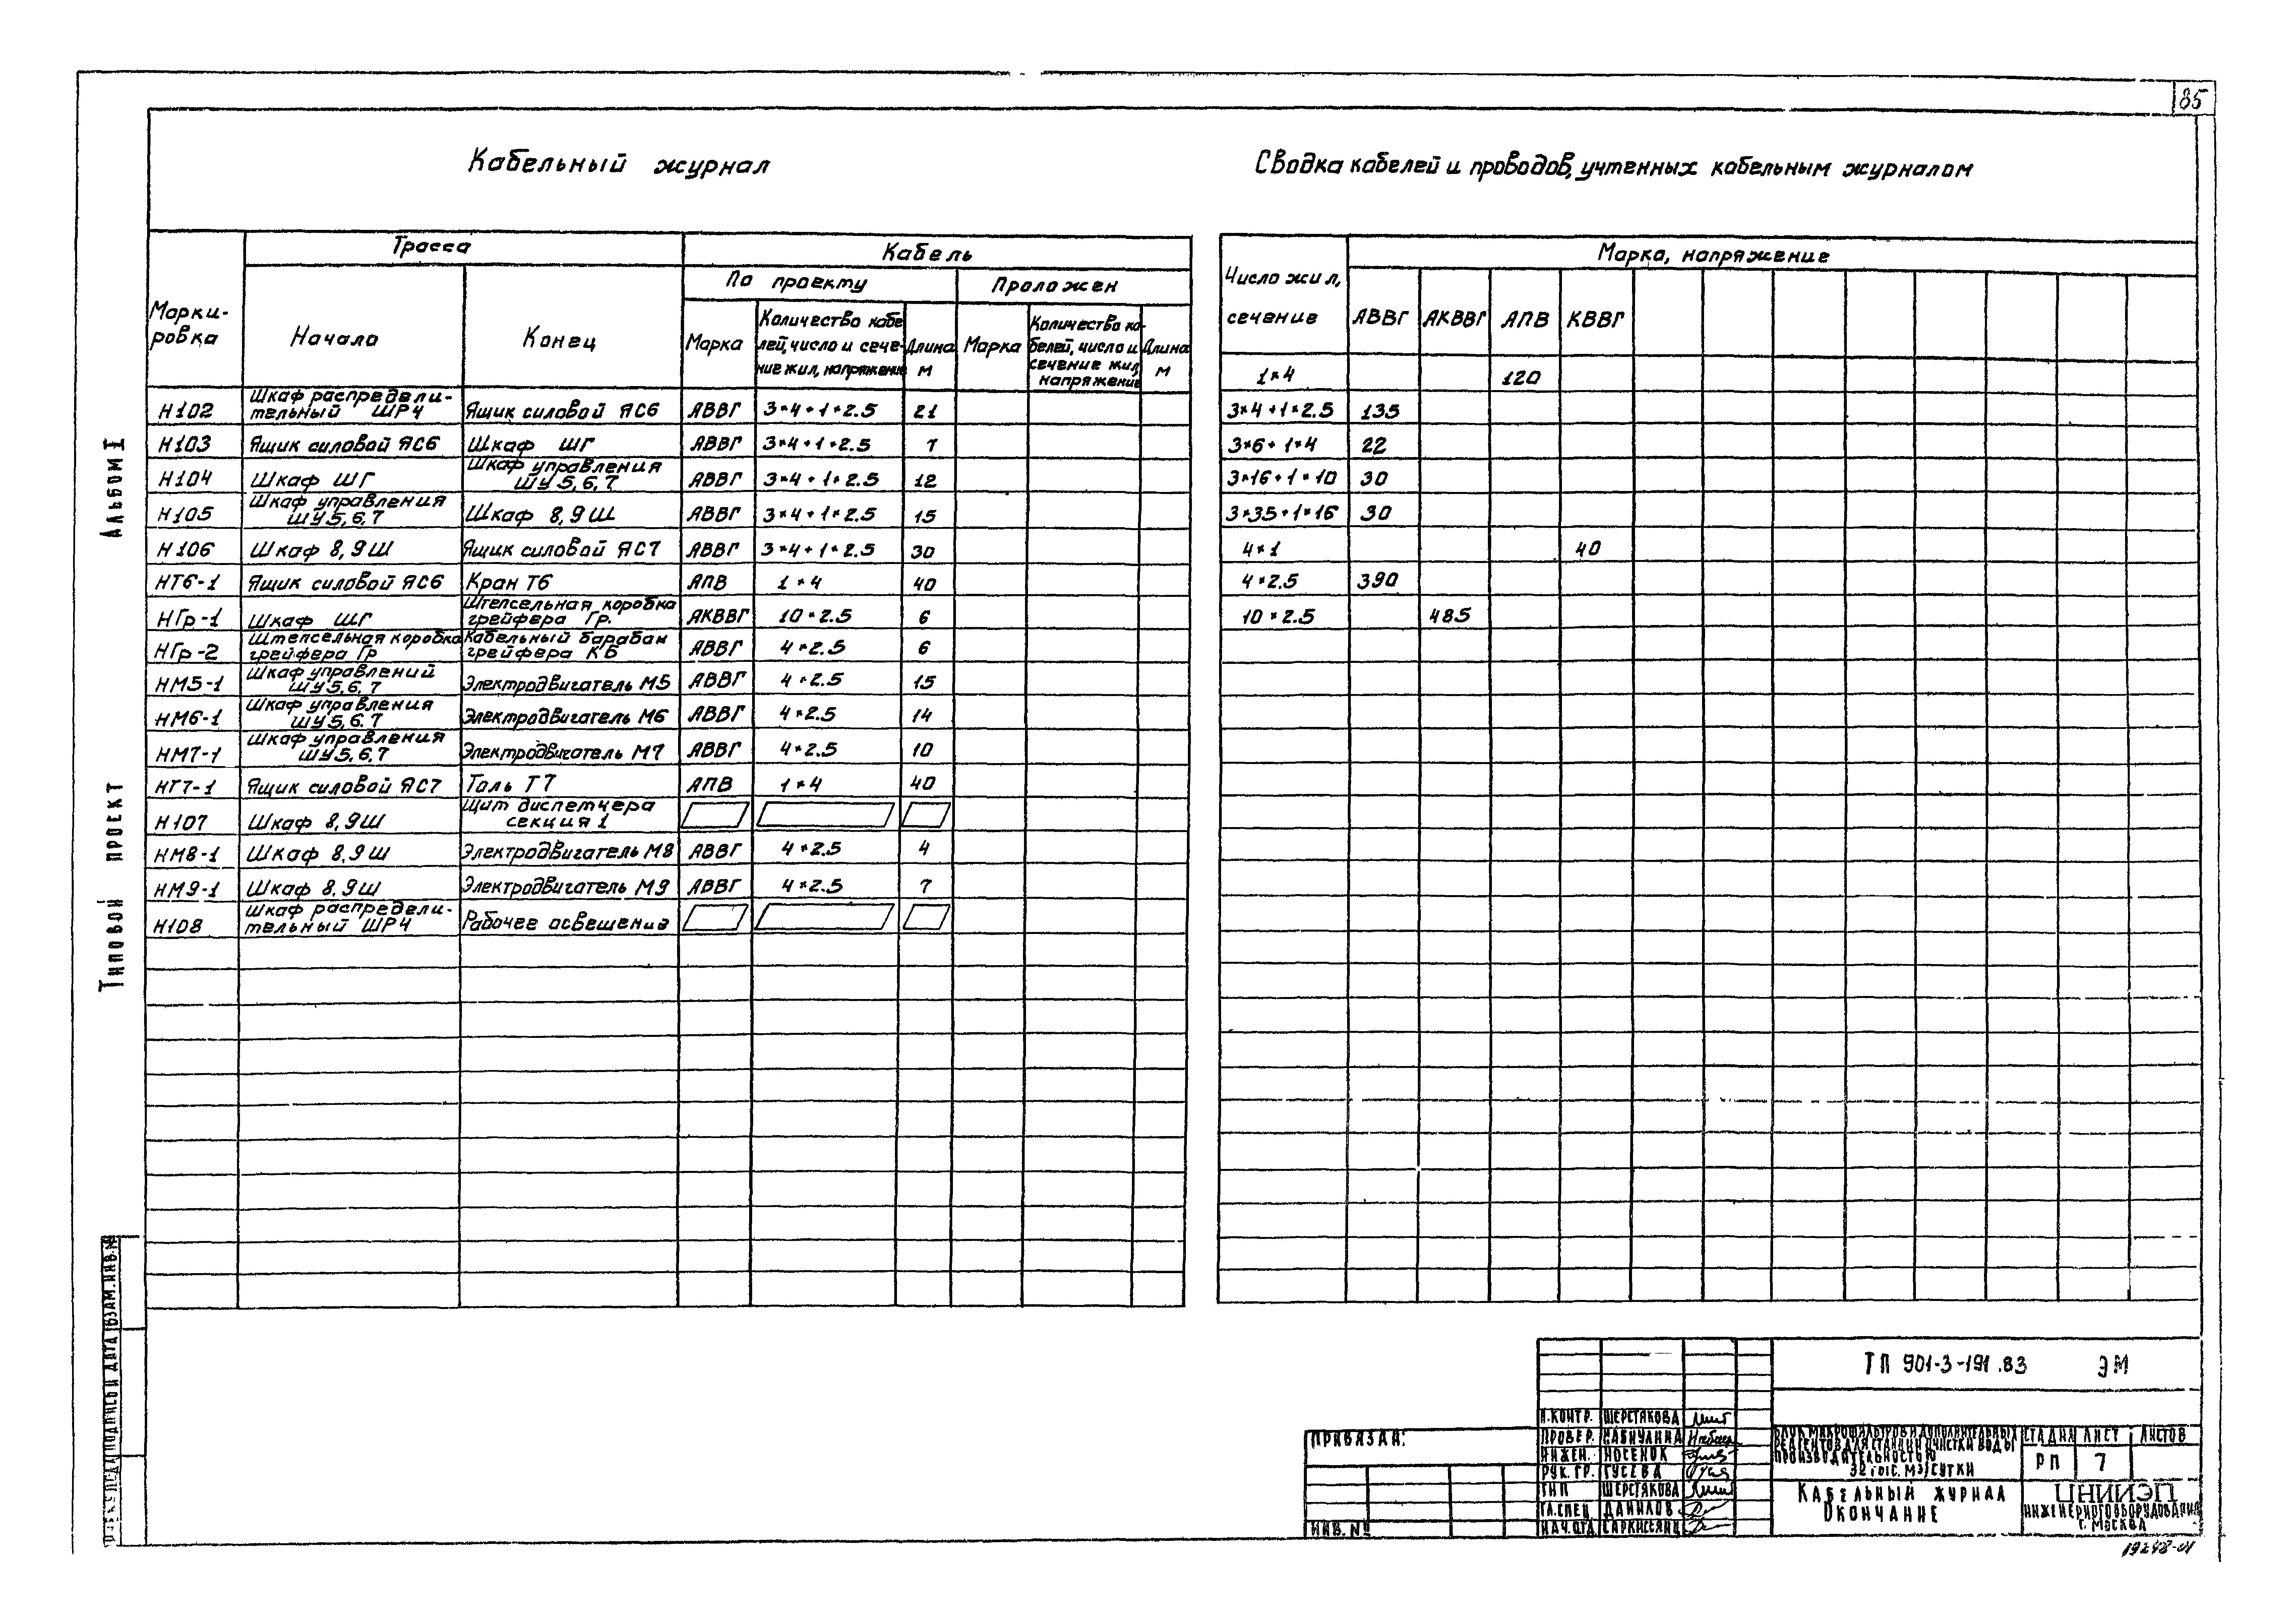 85
Кабельный журнал
Сводка кабелей и проводов, учтенных кабельным журналом
Марки-
ровка
Трасса
Кабель
Начало
Конец
По проекту
Проложен
Марка
Количество кабе
лей, число и сече-
ние жил, напряжение
Длина
м
Марка
Количество ка-
белей, число и
сечение жил,
напряжение
Длина
м
Н102 Шкаф распредели-
тельный ШР4 Ящик силовой ЯС6 АВВГ 3*4+1*2.5 21
Н103 Ящик силовой ЯС6 Шкаф ШГ АВВГ 3*4+1*2.5 7
Н104 Шкаф ШГ Шкаф управления
ШУ5,6,7 АВВГ 3*4+1*2.5 12
Н105 Шкаф управления
ШУ5,6,7 Шкаф 8,9Ш АВВГ 3*4+1*2.5 15
Н106 Шкаф 8,9Ш Ящик силовой ЯС7 АВВГ 3*4+1*2.5 30
НТ6-1 Ящик силовой ЯС6 Кран Т6 АПВ 1*4 40
НГр-1 Шкаф ШГ Штепсельная коробка
грейфера Гр. АКВВГ 10*2.5 6
НГр-2 Штепсельная коробка
грейфера Гр Кабельный барабан
грейфера КБ АВВГ 4*2.5 6
НМ5-1 Шкаф управлений
ШУ5,6,7 Электродвигатель М5 АВВГ 4*2.5 15
НМ6-1 Шкаф управления
ШУ5,6.7 Электродвигатель М6 АВВГ 4*2.5 14
НМ7-1 Шкаф управления
ШУ5,6,7 Электродвигатель М7 АВВГ 4*2.5 10
НТ7-1 Ящик силовой ЯС7 Таль Т7 АПВ 1*4 40
Н107 Шкаф 8,9Ш Щит диспетчера
секция 1
НМ8-1 Шкаф 8,9Ш Электродвигатель М8 АВВГ 4*2.5 4
НМ9-1 Шкаф 8.9Ш Электродвигатель М9 АВВГ 4*2.5 7
Н108 Шкаф распредели-
тельный ШР4 Рабочее освещение
Число жил,
сечение
Марка, напряжение
АВВГ АКВВГ АПВ КВВГ
1*4 120
3*4+1*2.5 135
3*6+1*4 22
3*16+1*10 30
3*35+1*16 30
4*1 40
4*2.5 390
10*2.5 485
Альбом I
Типовой проект
Подпись и дата
Взам.инв.№
Привязан:
Инв. №
Н.контр. Шерстякова
Провер. Сабчулина
Инжен. Носенок
Рук. гр. Гусева
ГИП Шерстякова
Гл.спец Данилов
Нач.отд Саркисянц
ТП 901-3-191.83 ЭМ
Блок микрофильтров и дополнительных
реагентов для станции очистки воды
производительностью
32 тыс. м3/сутки
Стадия Лист Листов
РП 7
Кабельный журнал
Окончание
ЦНИИЭП
инженерного оборудования
г. Москва
19248-01